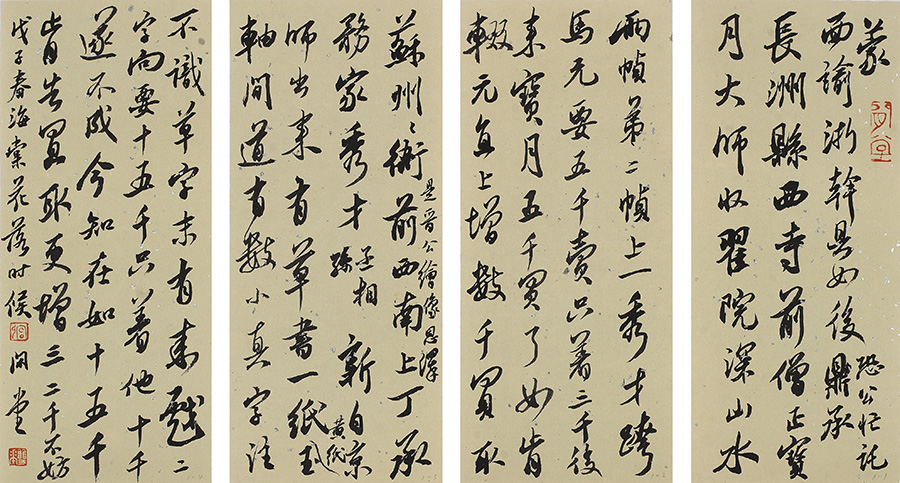 蒙
面諭浙幹具如後恐公忙託鼎承
長洲縣西寺前僧正寶
月大師收翟院深山水
兩幀第二幀上一秀才跨
馬元要五千賣只著三千後
來寶月五千買了如肯
輟元直上增數千買取
蘇州々衙前西南上丁承
是晉公繪像恩澤
務家秀才丞相孫新自京
師出來有草書一紙黃紙玉
軸間道有數小真字注
不識草字末有來戲二
字向要十五千只著他十千
遂不成今知在如十五千
肯告買取更增三二千不妨
戊子春海棠花落时候